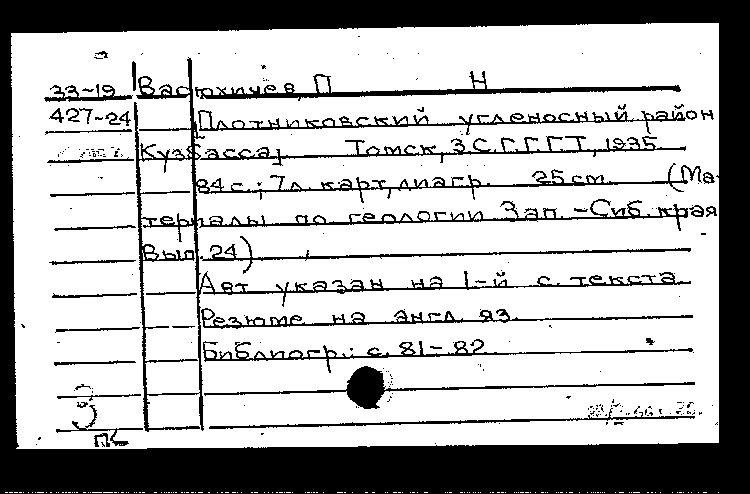 33-19 Васюхичев, П Н
427-24 [Плотниковский угленосный район
Кузбасса] Томск, З.С.Г.Г.Г.Т, 1935.
84 с.; 7 л. карт, диагр. 25 cm. (Ма-
териалы по геологии Зап.-Сиб. края
Вып. 24)
Авт указан на 1-й с. текста
Резюме на англ. яз.
Библиогр.: с. 81-82
3
ПК